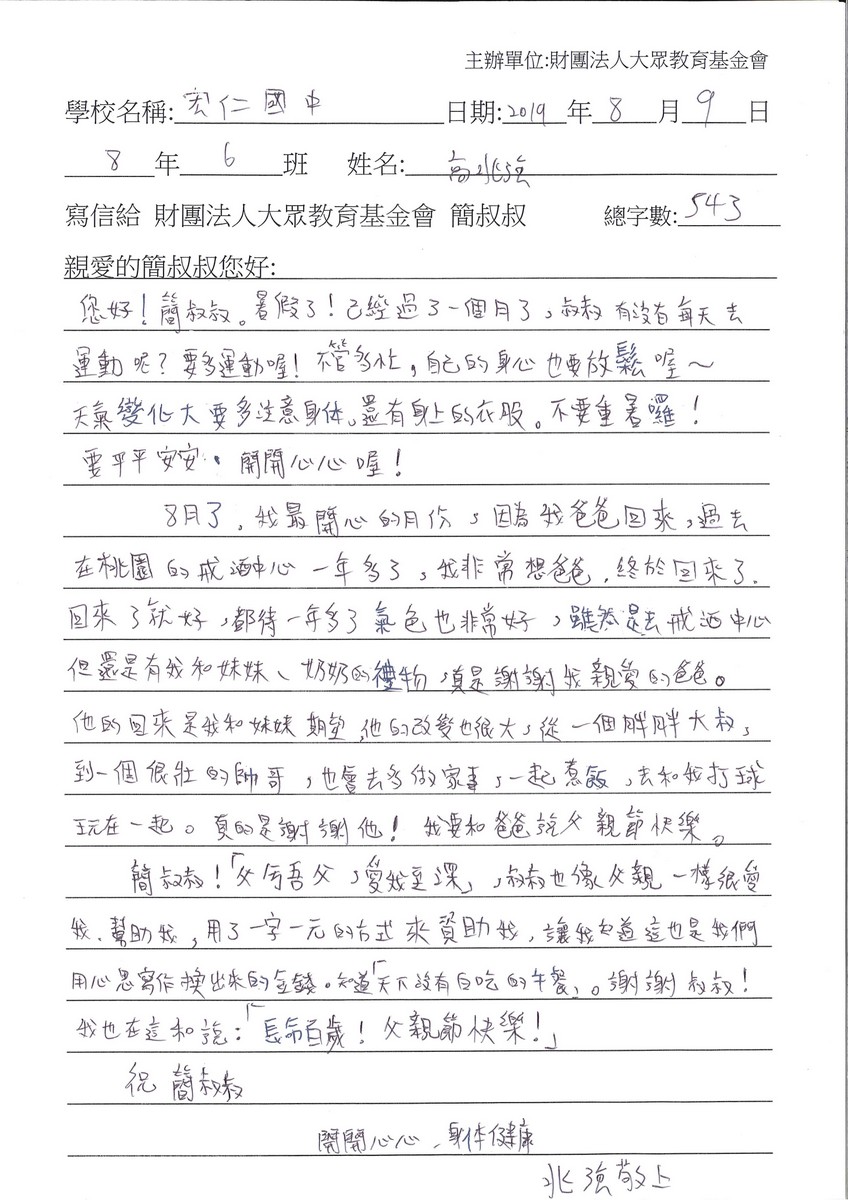 主辦單位:財團法人大眾教育基金會
學校名稱:宏仁國中 日期:2019年8月9日
8年6班 姓名:高兆強
寫信給 財團法人大眾教育基金會 簡叔叔 總字數:543
親愛的簡叔叔您好:
您好!簡叔叔。暑假了!已經過了一個月了,叔叔有沒有每天去
運動呢?要多運動喔!不管多忙,自己的身心也要放鬆喔~
天氣變化大要多注意身体,還有身上的衣服。不要重暑囉!
要平平安安、開開心心喔!
8月了,我最開心的月份,因為我爸爸回來,過去
在桃園的戒酒中心一年多了,我非常想爸爸,終於回來了.
回來了就好,都待一年多了氣色也非常好,雖然是去戒酒中心
但還是有我和妹妹、奶奶的禮物,真是謝謝我親愛的爸爸。
他的回來是我和妹妹期望,他的改變也很大,從一個胖胖大叔,
到一個很壯的帥哥,也會去多做家事,一起煮飯,去和我打球
玩在一起。真的是謝謝他!我要和爸爸說父親節快樂。
簡叔叔!「父兮吾父,愛我至深」,叔叔也像父親一樣很愛
我、幫助我,用了一字一元的方式來資助我,讓我知道這也是我們
用心思寫作換出來的金錢。知道「天下沒有白吃的午餐」。謝謝叔叔!
我也在這和說:「長命百歲!父親節快樂!」
祝 簡叔叔
開開心心、身体健康
兆強敬上